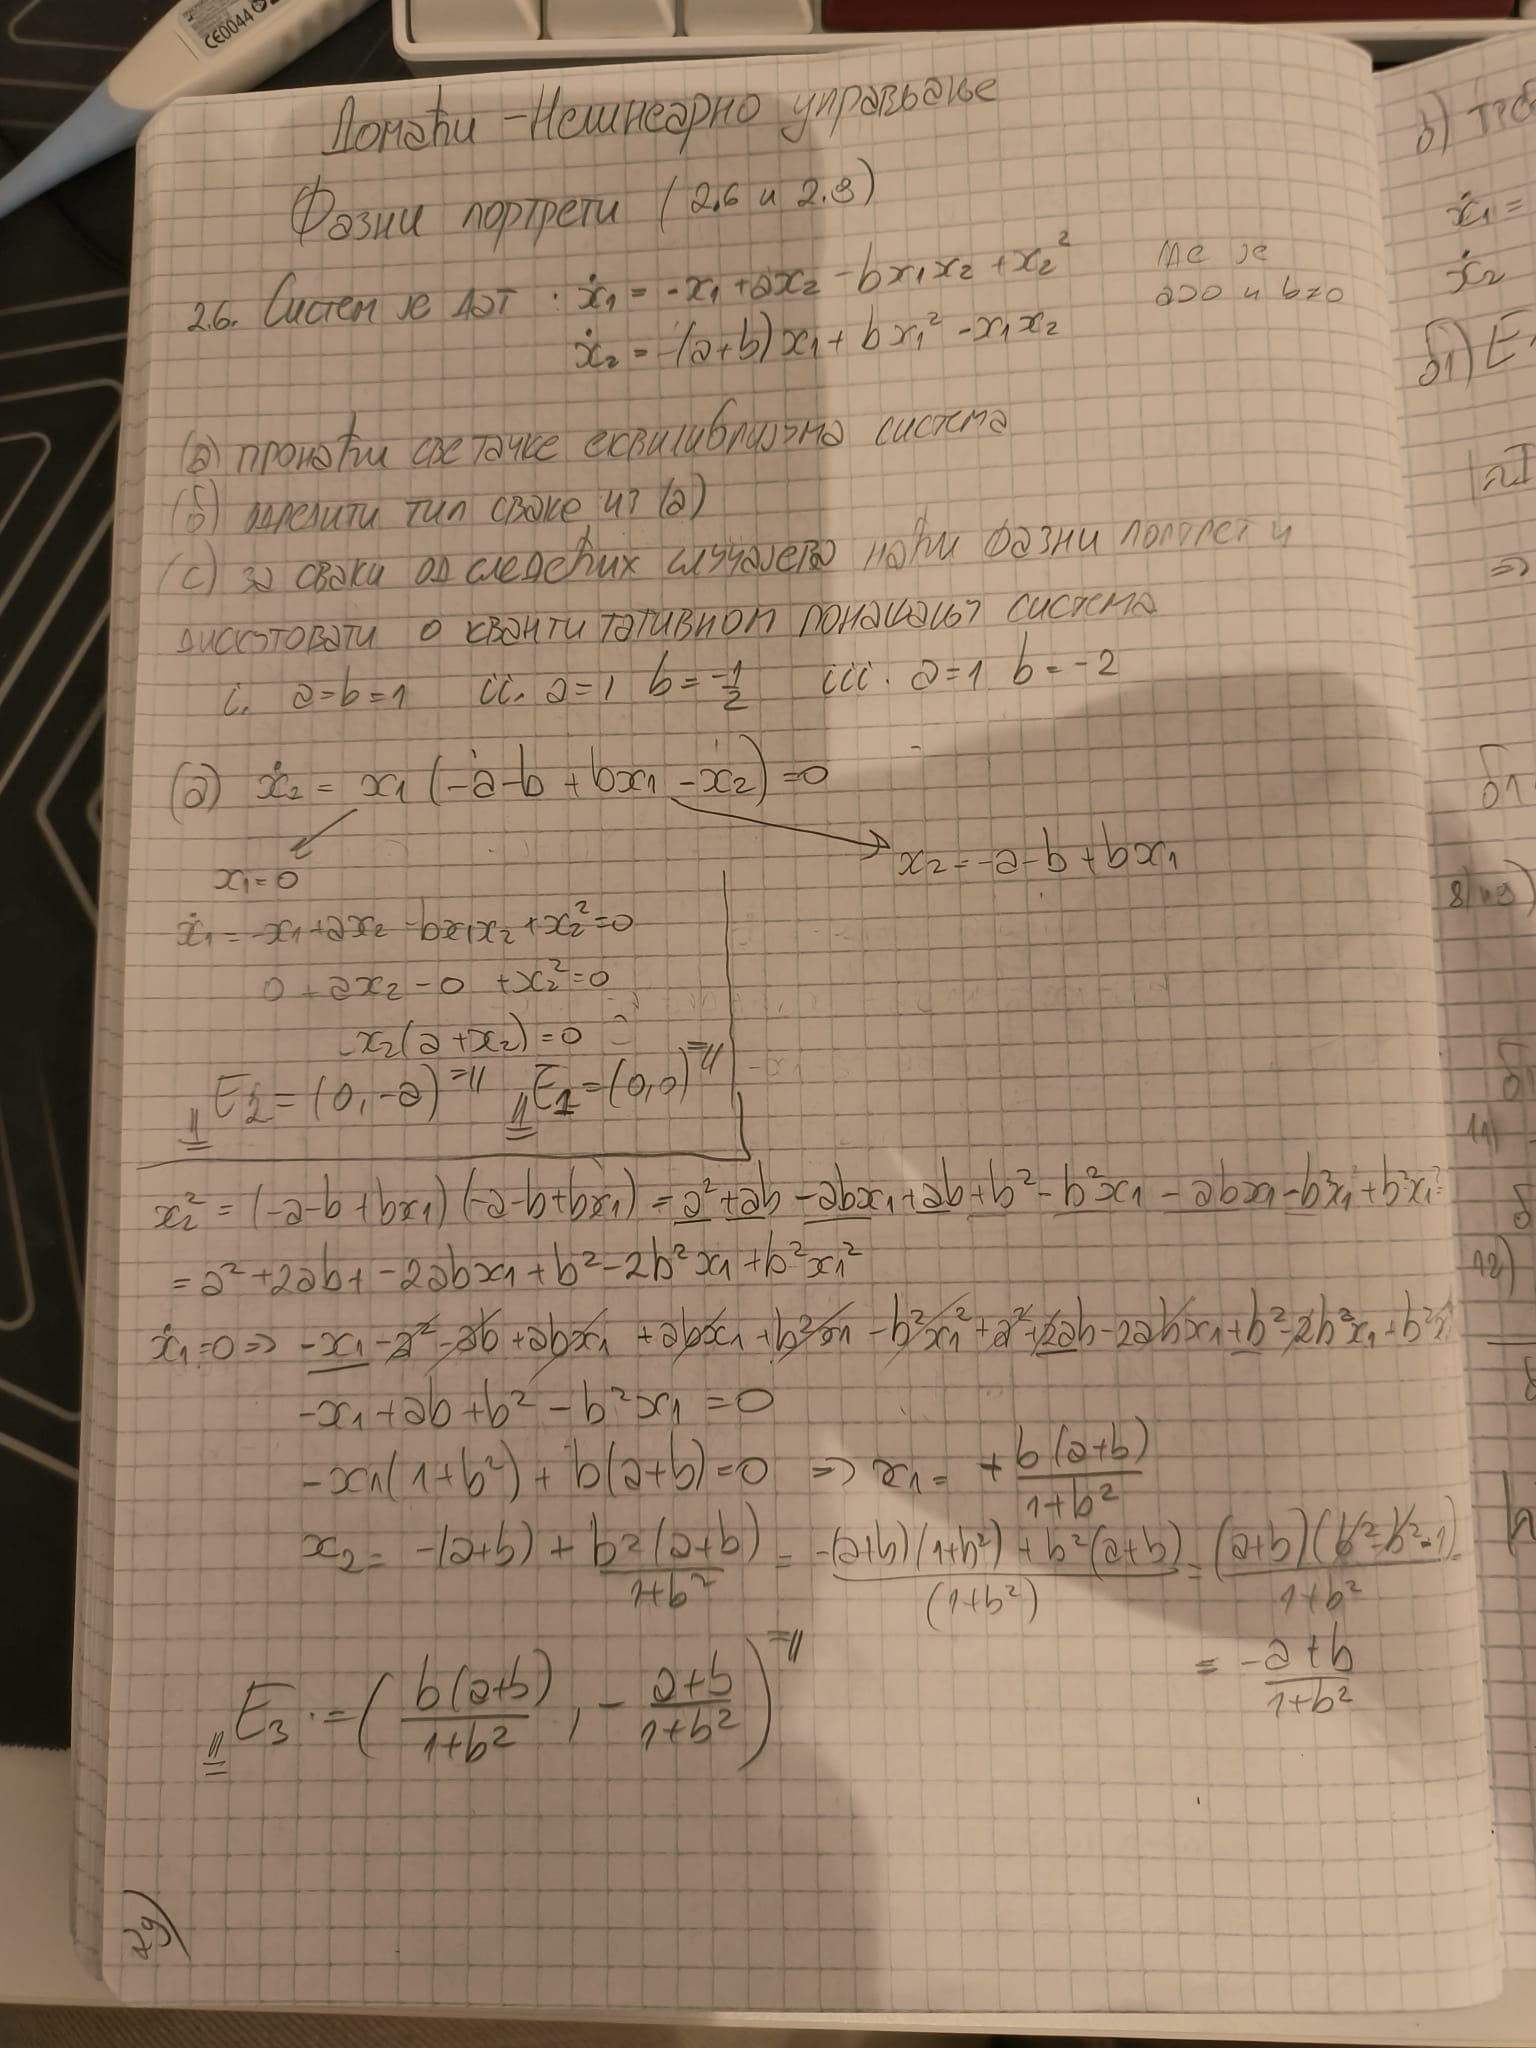 CE0044
Домаћи - Нелинеарно управљање
Фазни портрети (2.6 и 2.8)
2.6. Систем је дат : ẋ₁ = -x₁ + ax₂ - bx₁x₂ + x₂²
где је
a>0 и b≠0
ẋ₂ = -(a+b)x₁ + bx₁² - x₁x₂
(a) пронаћи све тачке еквилибријума система
(б) одредити тип сваке из (a)
(c) за сваки од следећих случајева наћи фазни портрет и
дискутовати о квантитативном понашању система
i. a=b=1 ii. a=1 b=-1/2 iii. a=1 b=-2
(a) ẋ₂ = x₁(-a-b+bx₁-x₂)=0
x₁=0
x₂=-a-b+bx₁
ẋ₁=-x₁+ax₂-bx₁x₂+x₂²=0
0+ax₂-0+x₂²=0
x₂(a+x₂)=0
E₂=(0,-a) E₁=(0,0)
x₂² = (-a-b+bx₁)(-a-b+bx₁) = a²+ab-abx₁+ab+b²-b²x₁-abx₁-b²x₁+b²x₁²
= a²+2ab+-2abx₁+b²-2b²x₁+b²x₁²
ẋ₁=0 => -x₁-a²-ab+abx₁+abx₁+b²x₁-b²x₁²+a²+2ab-2abx₁+b²-2b²x₁+b²x
-x₁+ab+b²-b²x₁=0
-x₁(1+b²)+b(a+b)=0 => x₁= + b(a+b)/(1+b²)
x₂= -(a+b) + b²(a+b)/(1+b²) = (-(a+b)(1+b²)+b²(a+b))/(1+b²) = (a+b)(b²-b²-1)/(1+b²) =
= -(a+b)/(1+b²)
E₃ := (b(a+b)/(1+b²), -(a+b)/(1+b²))
ẋ₁ =
ẋ₂
δ1) E
=>
12)